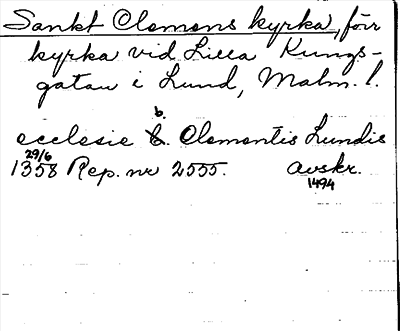 Sankt Clemens kyrka, förr
kyrka vid Lilla Kungs-
gatan i Lund, Malm. l.
b.
ecclesie C. Clementis Lundis
29/6
1358 Rep. nr 2555. Avskr.
1494